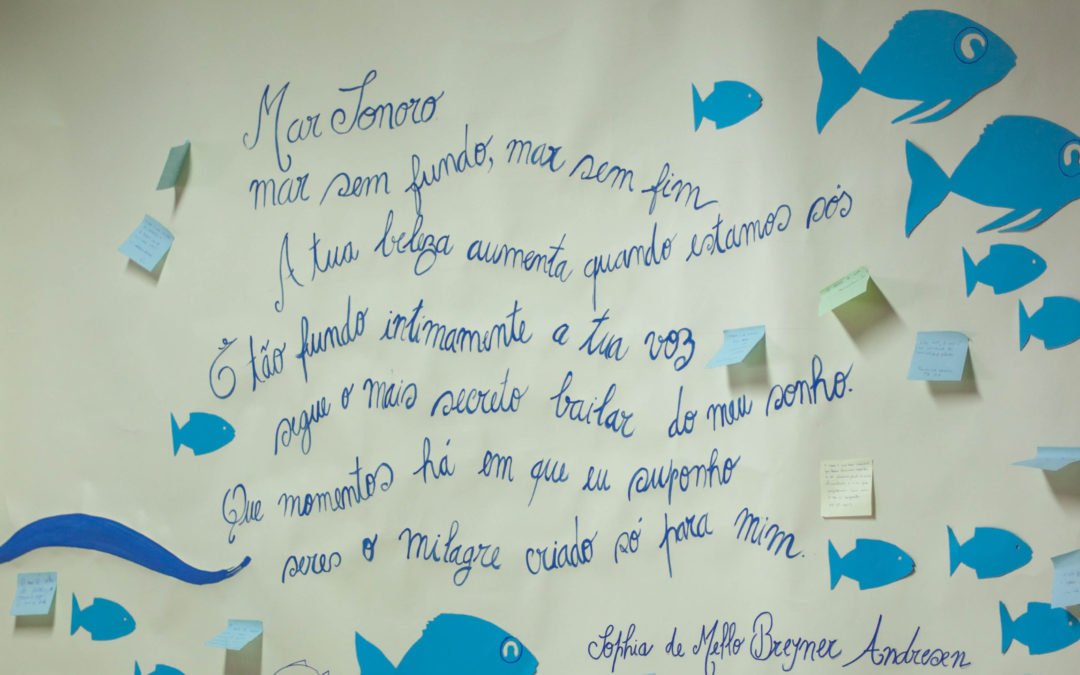 Mar Sonoro
mar sem fundo, mar sem fim
A tua beleza aumenta quando estamos sós
E tão fundo intimamente a tua voz
segue o mais secreto bailar do meu sonho.
Que momentos há em que eu suponho
seres o milagre criado só para mim.
Sophia de Mello Breyner Andresen